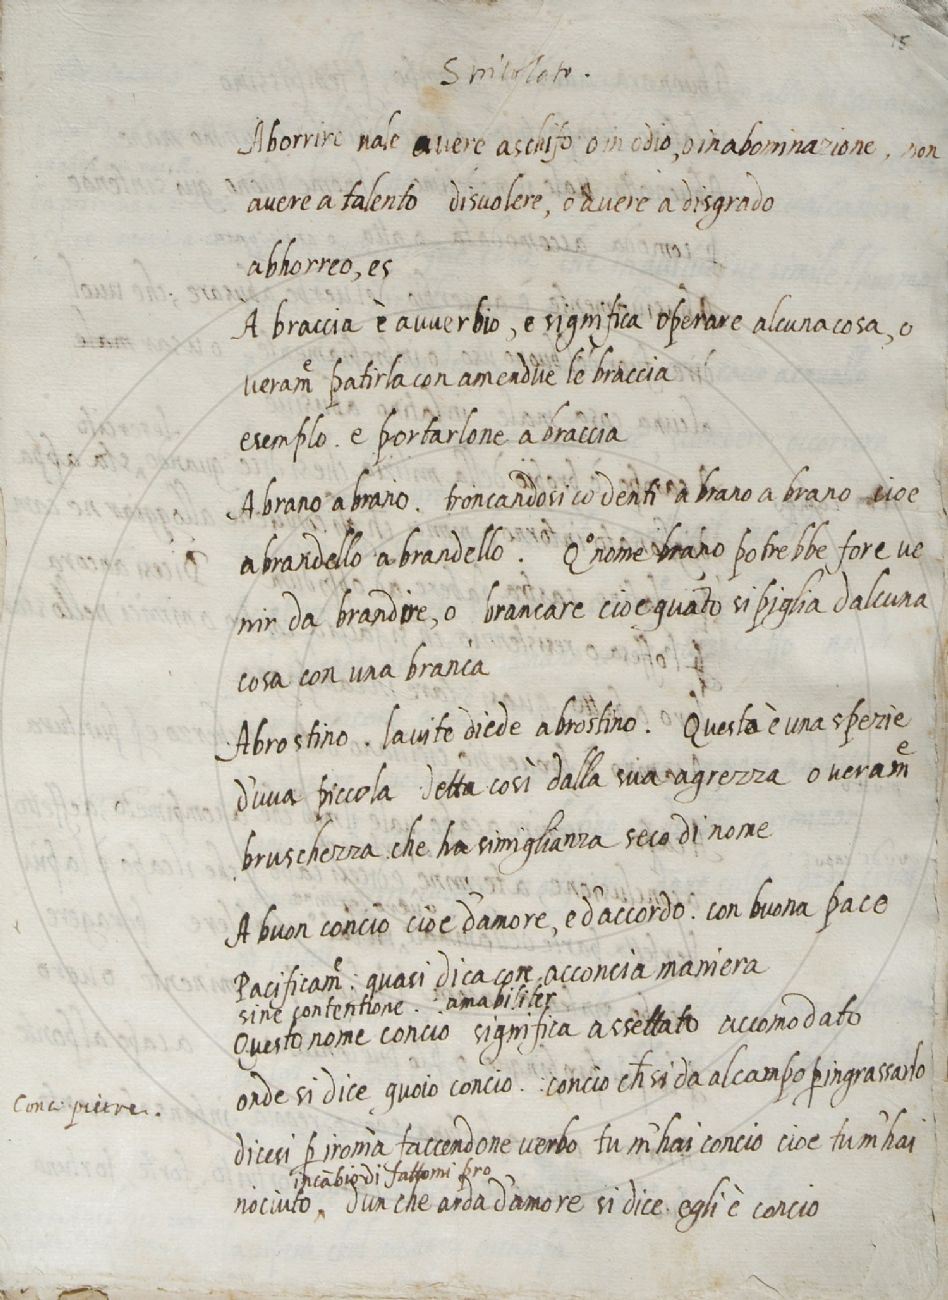 15
Aborrire vale avere aschifo, o in odio, o in abominazione, non
avere a talento disvolere, o avere a disgrado
abhorreo, es
A braccia è avverbio, e significa operare alcuna cosa, o
veramᵉ patirla con amendue le braccia
esemplo. e portarlone a braccia
A brano a brano. troncandosi co denti a brano a brano cioe
a brandello a brandello. Qº nome brano potrebbe fore ve
nir da brandire, o brancare cioe quãto si piglia d'alcuna
cosa con una branca
Abrostino. la vite diede abrostino. Questa è una spezie
d'uva piccola detta così dalla sua agrezza o veramᵉ
bruschezza che ha simiglianza seco di nome
A buon concio cioè d'amore, e d'accordo. con buona pace
Pacificamᵉ: quasi dica con acconcia maniera
sine contentione. amabiliter
Questo nome concio significa assettato accomodato
onde si dice quoio concio. concio ch̃ si da al campo p̱ ingrassarlo
Conc. pietre.
dicesi p̱ ironia faccendone verbo tu m'hai concio cioe tu m'hai
incãbio di fattomi pro
nociuto. D'un che arda d'amore si dice egli è concio